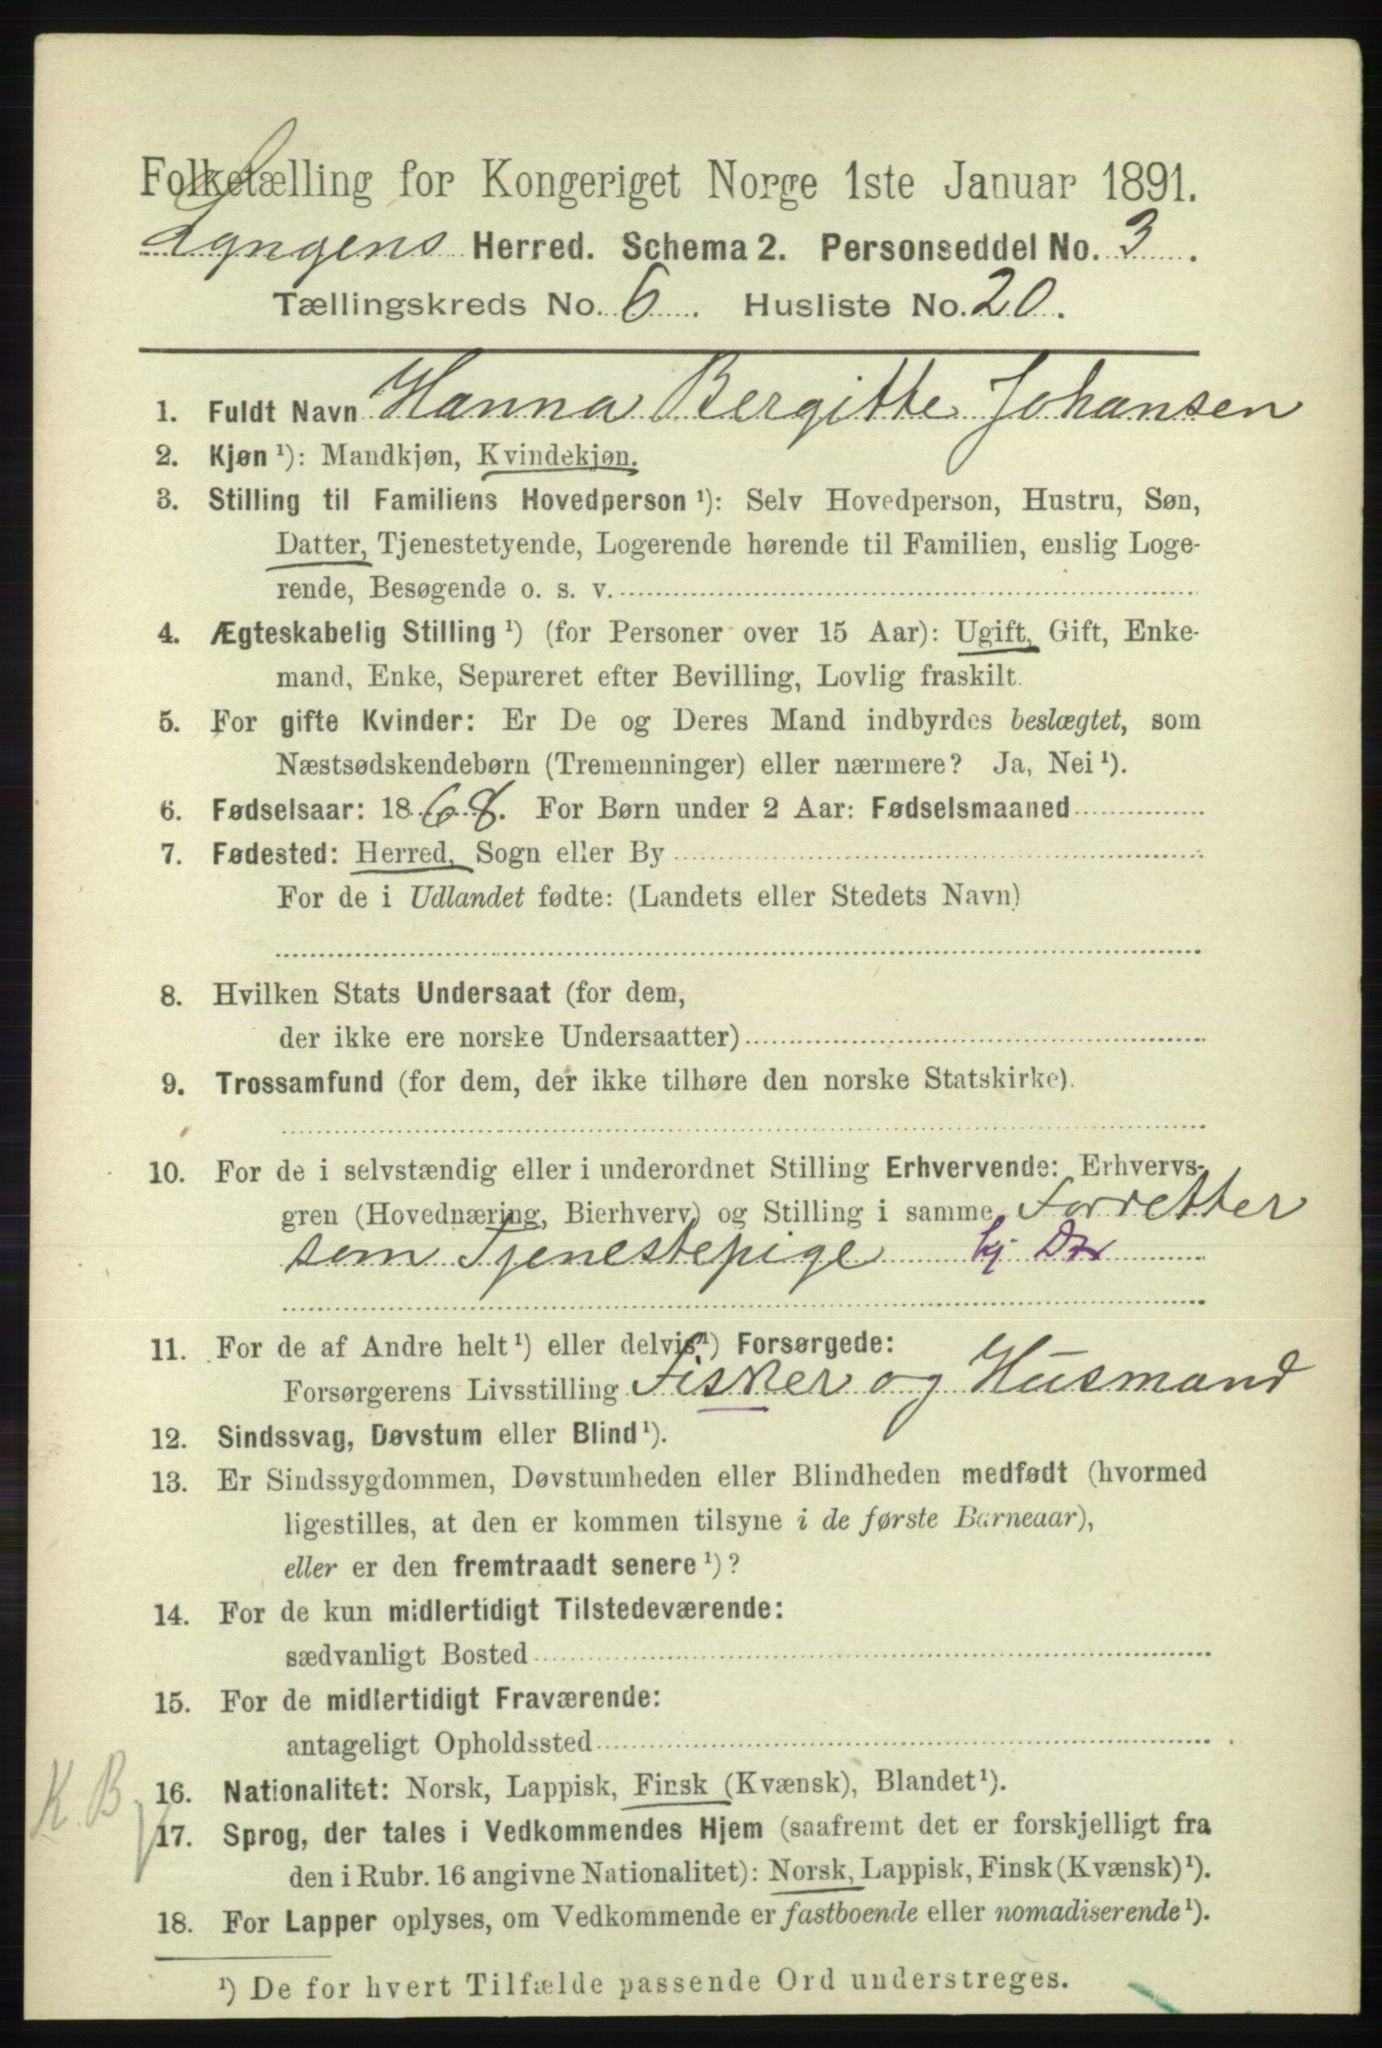 Folketælling for Kongeriget Norge 1ste Januar 1891.
Lyngens Herred. Schema 2. Personseddel No. 3.
Tællingskreds No. 6. Husliste No. 20.
1. Fuldt Navn Hanna Bergitte Johansen
2. Kjøn ¹): Mandkjøn, Kvindekjøn.
3. Stilling til Familiens Hovedperson ¹): Selv Hovedperson, Hustru, Søn,
Datter, Tjenestetyende, Logerende hørende til Familien, enslig Loge-
rende, Besøgende o. s. v.
4. Ægteskabelig Stilling ¹) (for Personer over 15 Aar): Ugift, Gift, Enke-
mand, Enke, Separeret efter Bevilling, Lovlig fraskilt.
5. For gifte Kvinder: Er De og Deres Mand indbyrdes beslægtet, som
Næstsødskendebørn (Tremenninger) eller nærmere? Ja, Nei ¹).
6. Fødselsaar: 1868. For Børn under 2 Aar: Fødselsmaaned
7. Fødested: Herred, Sogn eller By
For de i Udlandet fødte: (Landets eller Stedets Navn)
8. Hvilken Stats Undersaat (for dem,
der ikke ere norske Undersaatter)
9. Trossamfund (for dem, der ikke tilhøre den norske Statskirke).
10. For de i selvstændig eller i underordnet Stilling Erhvervende: Erhvervs-
gren (Hovednæring, Bierhverv) og Stilling i samme Forretter
som Tjenestepige
11. For de af Andre helt ¹) eller delvis ¹) Forsørgede:
Forsørgerens Livsstilling Fisker og Husmand
12. Sindssvag, Døvstum eller Blind ¹).
13. Er Sindssygdommen, Døvstumheden eller Blindheden medfødt (hvormed
ligestilles, at den er kommen tilsyne i de første Barneaar),
eller er den fremtraadt senere ¹)?
14. For de kun midlertidigt Tilstedeværende:
sædvanligt Bosted
15. For de midlertidigt Fraværende:
antageligt Opholdssted
K. B
16. Nationalitet: Norsk, Lappisk, Finsk (Kvænsk), Blandet ¹).
17. Sprog, der tales i Vedkommendes Hjem (saafremt det er forskjelligt fra
den i Rubr. 16 angivne Nationalitet): Norsk, Lappisk, Finsk (Kvænsk) ¹).
18. For Lapper oplyses, om Vedkommende er fastboende eller nomadiserende ¹).
¹) De for hvert Tilfælde passende Ord understreges.